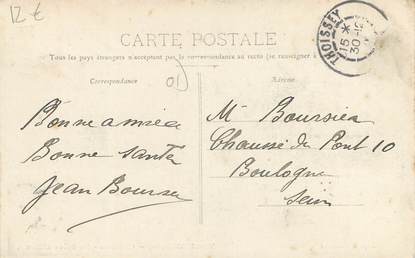 12 €
CARTE POSTALE
Tous les pays étrangers n'acceptent pas la correspondance au recto (se renseigner à
Correspondance
Adresse
THOISSEY
15 *
30 -12
Bonne année
Bonne santé
Jean Boursier
Mr Boursier
Chaussé du Pont 10
Boulogne
Seine